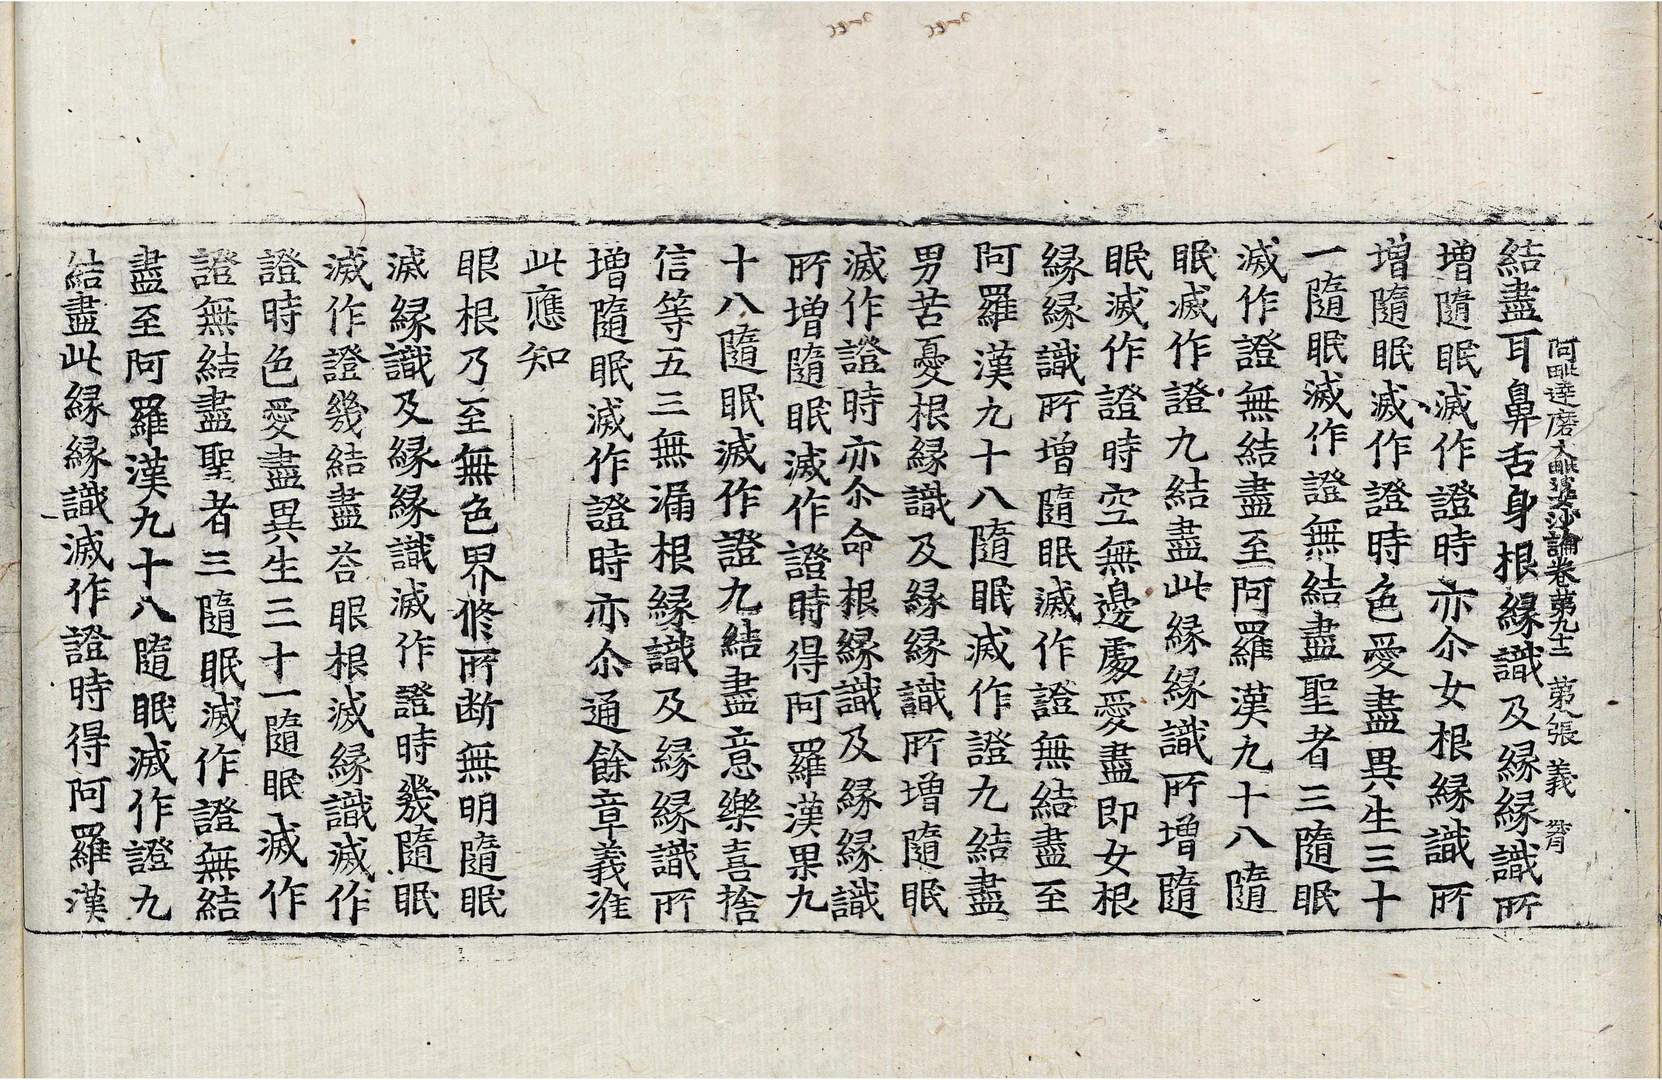 阿毗達磨大毗婆沙論卷第九十二 第八張 義
結盡耳鼻舌身根緣識及緣緣識所
增隨眠滅作證時亦尒女根緣識所
增隨眠滅作證時色愛盡異生三十
一隨眠滅作證無結盡聖者三隨眠
滅作證無結盡至阿羅漢九十八隨
眠滅作證九結盡此緣緣識所增隨
眠滅作證時空無邊處愛盡即女根
緣緣識所增隨眠滅作證無結盡至
阿羅漢九十八隨眠滅作證九結盡
男苦憂根緣識及緣緣識所增隨眠
滅作證時亦尒命根緣識及緣緣識
所增隨眠滅作證時得阿羅漢果九
十八隨眠滅作證九結盡意樂喜捨
信等五三無漏根緣識及緣緣識所
增隨眠滅作證時亦尒通餘章義准
此應知
眼根乃至無色界修所断無明隨眠
滅緣識及緣緣識滅作證時幾隨眠
滅作證幾結盡荅眼根滅緣識滅作
證時色愛盡異生三十一隨眠滅作
證無結盡聖者三隨眠滅作證無結
盡至阿羅漢九十八隨眠滅作證九
結盡此緣緣識滅作證時得阿羅漢